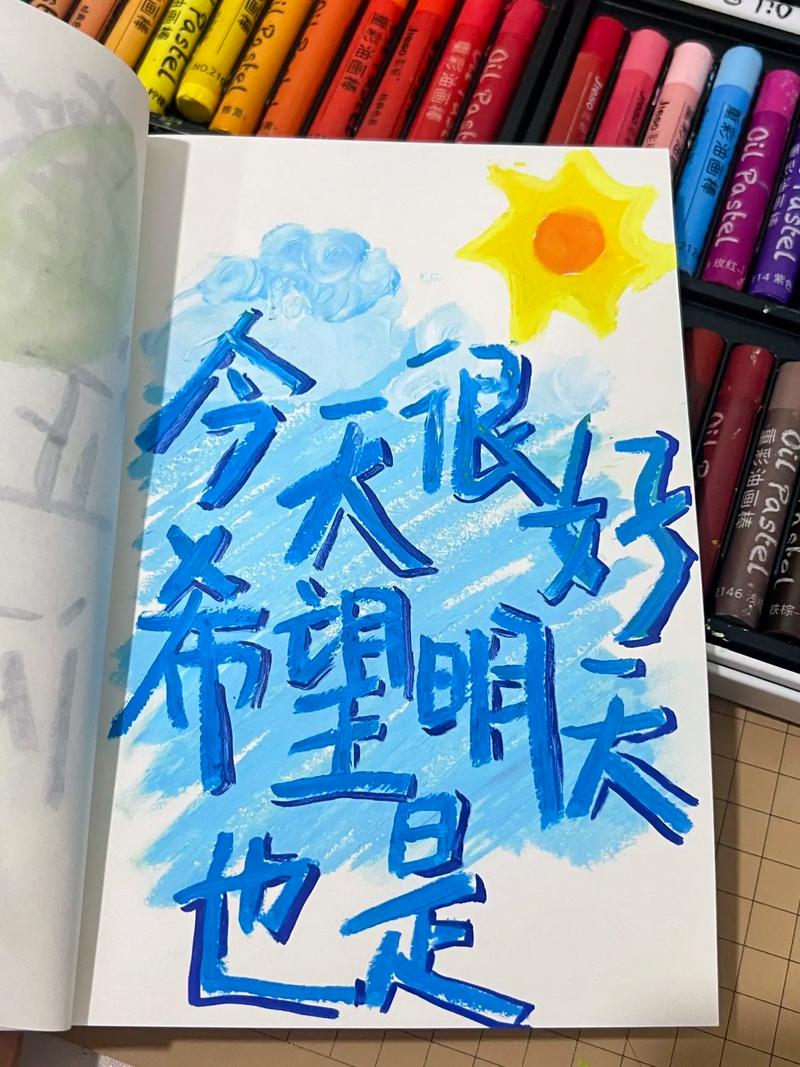 今天很好
希望明天
也是
Oil Pastel
重彩油画棒
Oil Pastel
玫红
Oil Pastel
重彩油画棒
14 紫色
Oil Pastel
重彩油画棒